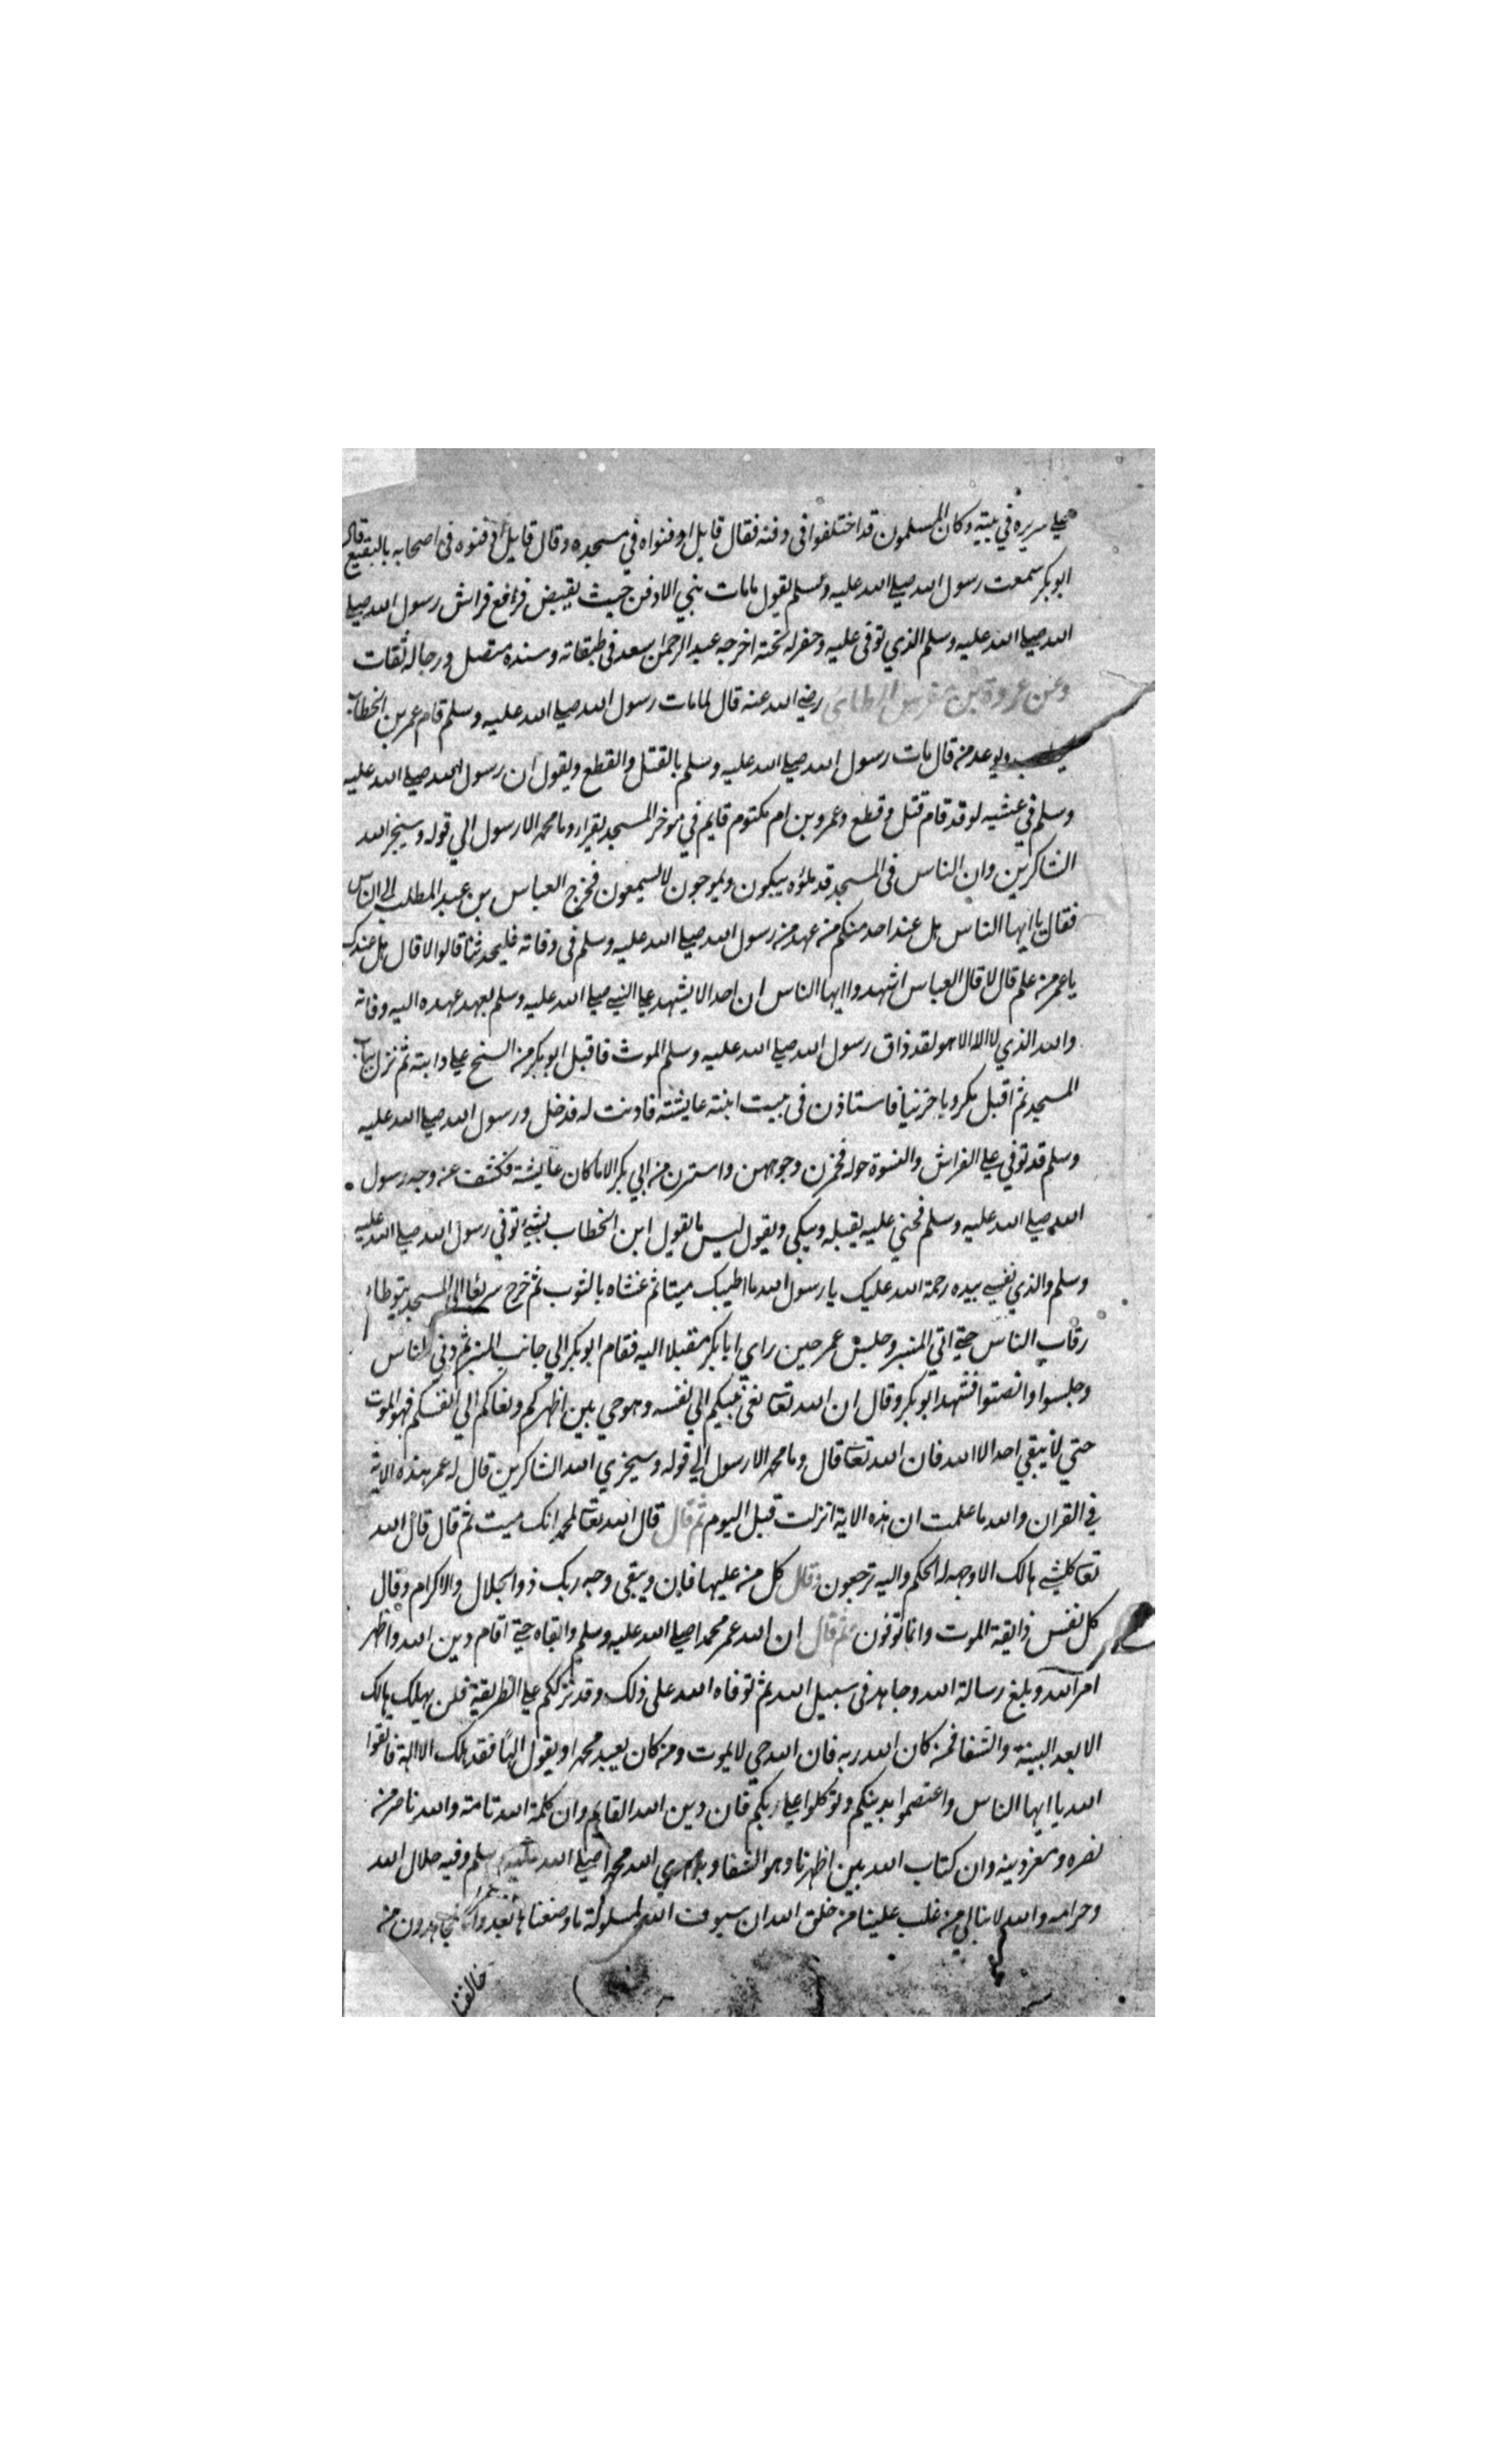 علي سريره في بيته وكان المسلمون قد اختلفوا في دفنه فقال قايل ادفنواه في مسجده وقال قايل ادفنوه في اصحابه بالبقيع فقال
ابو بكر سمعت رسول الله صلي الله عليه وسلم يقول مامات نبي الا دفن حيث يقبض فرافع فراش رسول الله صلي
الله صلي الله عليه وسلم الذي توفي عليه وحفر له تحته اخرجه عبد الرحمن سعد في طبقاته وسنده متصل ورجاله ثقات
وعن عروة بن مضرس الطائي رضي الله عنه قال لما مات رسول الله صلي الله عليه وسلم قام عمر بن الخطاب
ويوعد من قال مات رسول الله صلي الله عليه وسلم بالقتل والقطع ويقول ان رسول الله صلي الله عليه
وسلم في عشيه لو قد قام قتل وقطع وعمرو بن ام مكتوم قايم في موخر المسجد يقرا وما محمد الا رسول الي قوله وسيجز الله
الشاكرين وان الناس في المسجد قد ملؤه يبكون ويموجون لا يسمعون فخرج العباس بن عبد المطلب الي الناس
فقال يا ايها الناس هل عند احد منكم من عهد من رسول الله صلي الله عليه وسلم في وفاته فليحدثنا قالوا لا قال هل عندك
يا عمر من علم قال لا قال العباس اشهدوا ايها الناس ان احدا لا يشهد علي النبي صلي الله عليه وسلم بعهد عهده اليه وفاته
والله الذي لا اله الا هو لقد ذاق رسول الله صلي الله عليه وسلم الموت فاقبل ابو بكر من السنح علي دابته ثم نزل بباب
المسجد ثم اقبل مكروبا حزنيا فاستاذن في بيت ابنته عايشة فاذنت له فدخل ورسول الله صلي الله عليه
وسلم قد توفي علي الفراش والنسوة حوله فخمرن وجوههن واستترن من ابي بكر الا ما كان عايشة فكشف عن وجه رسول
الله صلي الله عليه وسلم فحني عليه يقبله ويبكي ويقول ليس ما يقول ابن الخطاب بشيء توفي رسول الله صلي الله عليه
وسلم والذي نفسي بيده رحمة الله عليك يا رسول الله ما اطيبك ميتا ثم غشاه بالثوب ثم خرج سريعا الي المسجد يتوطاء
رقاب الناس حتي اتي المنبر وجلس عمر حين راي ابا بكر مقبلا اليه فقام ابو بكر الي جانب المنبر ثم دني الناس
وجلسوا وانصتوا فتشهد ابو بكر وقال ان الله تعا نعي نبيكم الي نفسه وهو حي بين اظهركم ونعاكم الي انفسكم فهو الموت
حتي لا يبقي احد الا الله فان الله تعا قال وما محمد الا رسول الي قوله وسيجزي الله الشاكرين قال له عمر هذه الاية
في القران والله ما علمت ان هذه الاية انزلت قبل اليوم ثم قال قال الله تعا لمحمد انك ميت ثم قال قال الله
تعا كل شي هالك الا وجهه له الحكم واليه ترجعون وقال كل من عليها فان ويبقي وجه ربك ذو الجلال والاكرام وقال
كل نفس ذايقة الموت وانما توفون ثم قال ان الله عمر محمدا صلي الله عليه وسلم وابقاه حتي اقام دين الله واظهر
امر الله وبلغ رسالة الله وجاهد في سبيل الله ثم توفاه الله علي ذلك وقد ترككم علي الطريقة فلن يهلك هالك
الا بعد البينة والشفا فمن كان الله ربه فان الله حي لا يموت ومن كان يعبد محمدا ويقول الها فقد هلك الا الهة فاتقوا
الله يا ايها الناس واعتصموا بدينكم وتوكلوا علي ربكم فان دين الله القايم وان كلمة الله تامة والله ناصر من
نصره ومعز دينه وان كتاب الله بين اظهرنا وهو الشفا وبه هدي الله محمدا صلي الله عليه وسلم وفيه حلال الله
وحرامه والله لا نبالي من غلب علينا من خلق الله ان سيوف الله لمسلولة ما وضعناها بعد وانا مجاهدون من
خالفنا